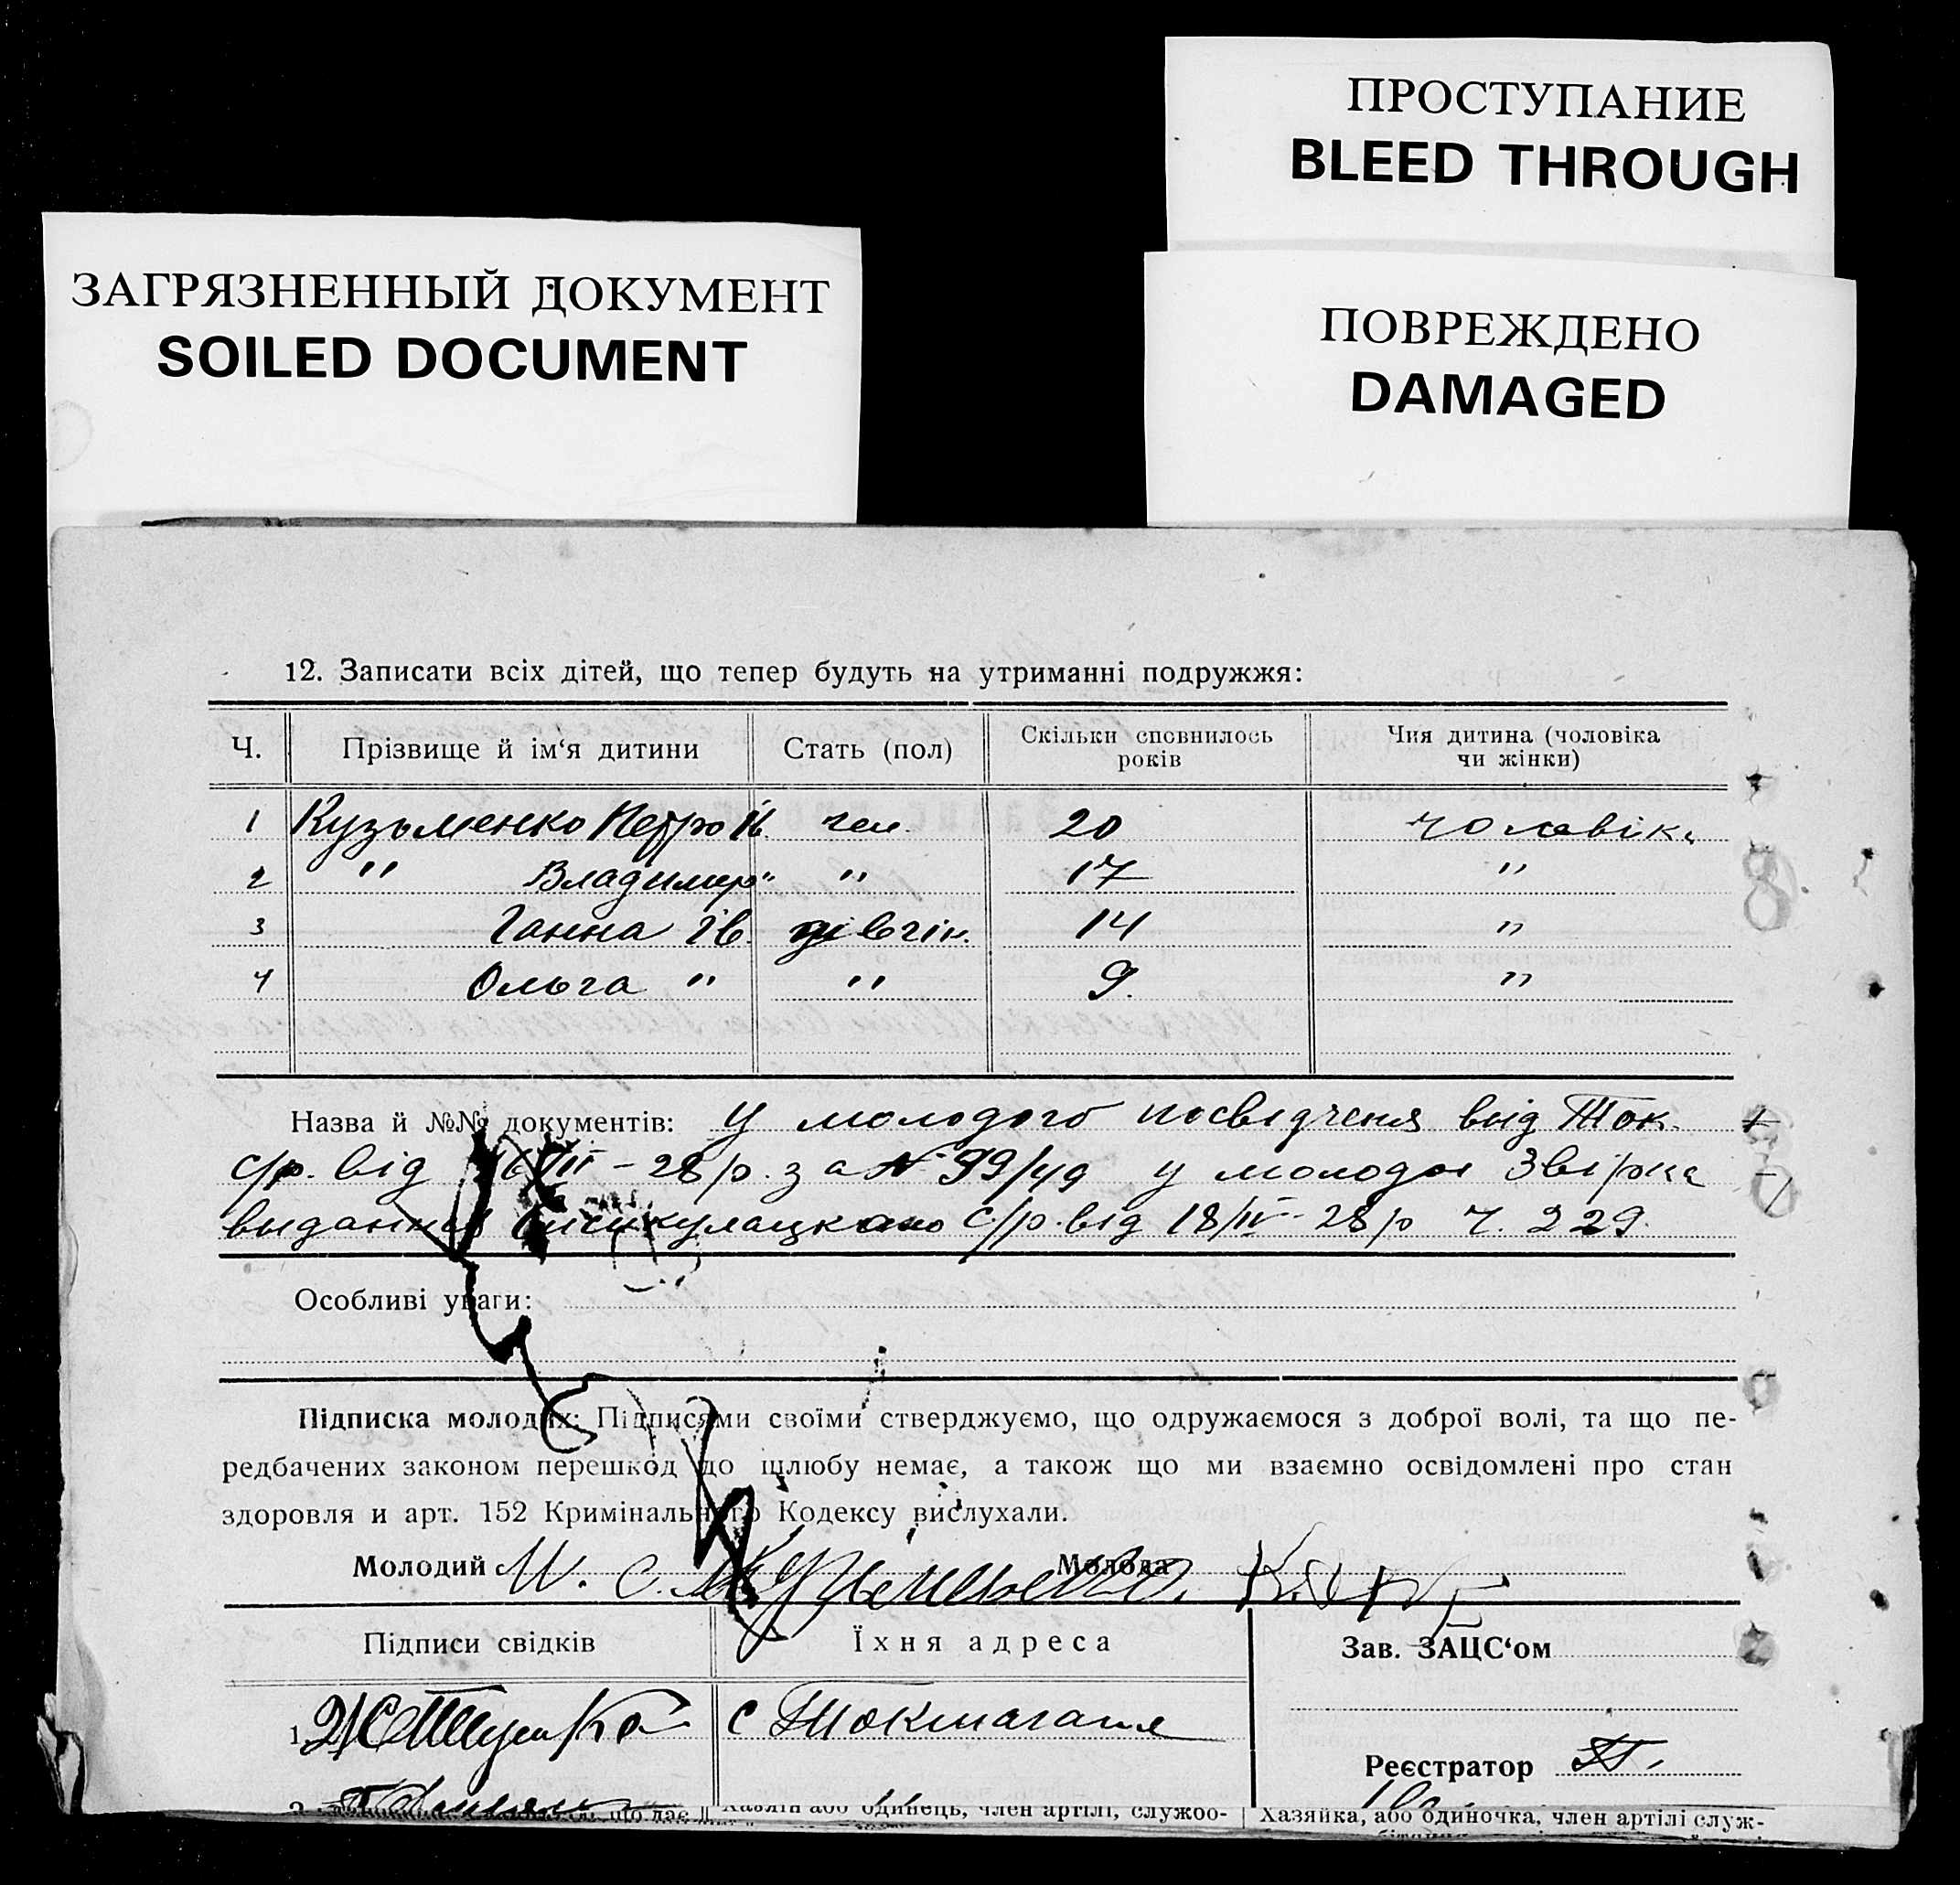 ПРОСТУПАНИЕ
BLEED THROUGH
ЗАГРЯЗНЕННЫЙ ДОКУМЕНТ
SOILED DOCUMENT
ПОВРЕЖДЕНО
DAMAGED
12. Записати всіх дітей, що тепер будуть на утриманні подружжя:
Ч. Прізвище й ім‘я дитини Стать (пол) Скільки сповнилось років Чия дитина (чоловіка чи жінки)
1 Кузьменко Петро Ів. чол. 20 чоловіка
2 " Владимир " " 17 "
3 Ганна Ів. дівчін. 14 "
4 Ольга " " 9. "
Назва й №№ документів: У молодого посвідченя від Ток.
с/р. від III – 28 р. за № 99/49 у молодої Звірка
видання с/р. від 18/IV – 28 р Ч. 229.
Особливі уваги:
Підписка молодих: Підписями своїми стверджуємо, що одружаємося з доброї волі, та що пе-
редбачених законом перешкод до шлюбу немає, а також що ми взаємно освідомлені про стан
здоровля и арт. 152 Кримінального Кодексу вислухали.
Молодий Молода
Підписи свідків Їхня адреса Зав. ЗАЦС‘ом
1. с
Реєстратор
2. що дає Хазяїн або одинець, член артілі, службо- Хазяйка, або одиночка, член артілі служ-